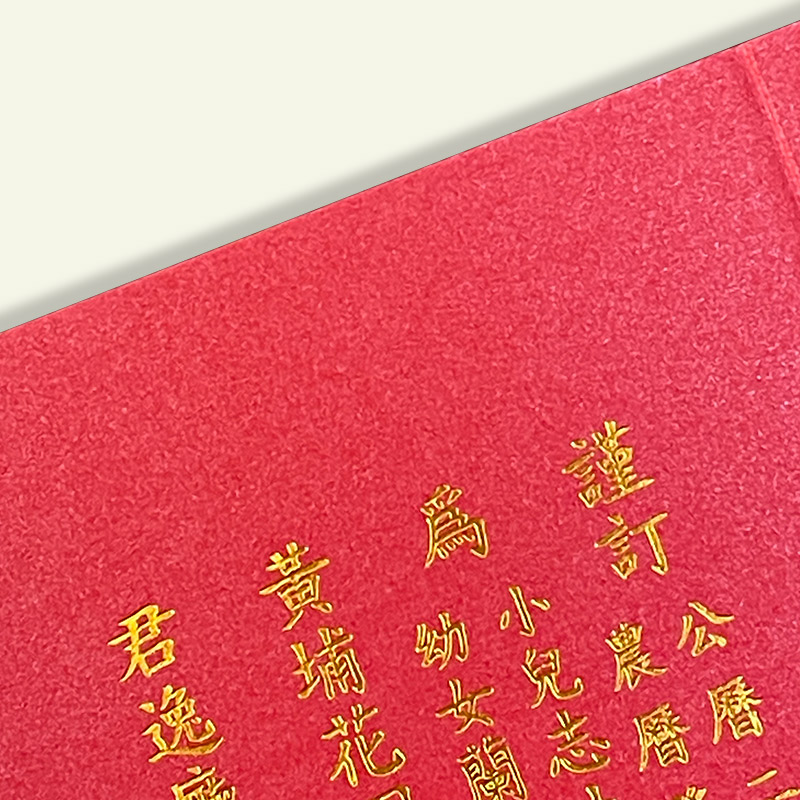 謹訂
公曆二
農曆
爲
小兒志
幼女蘭
黃埔花
君逸